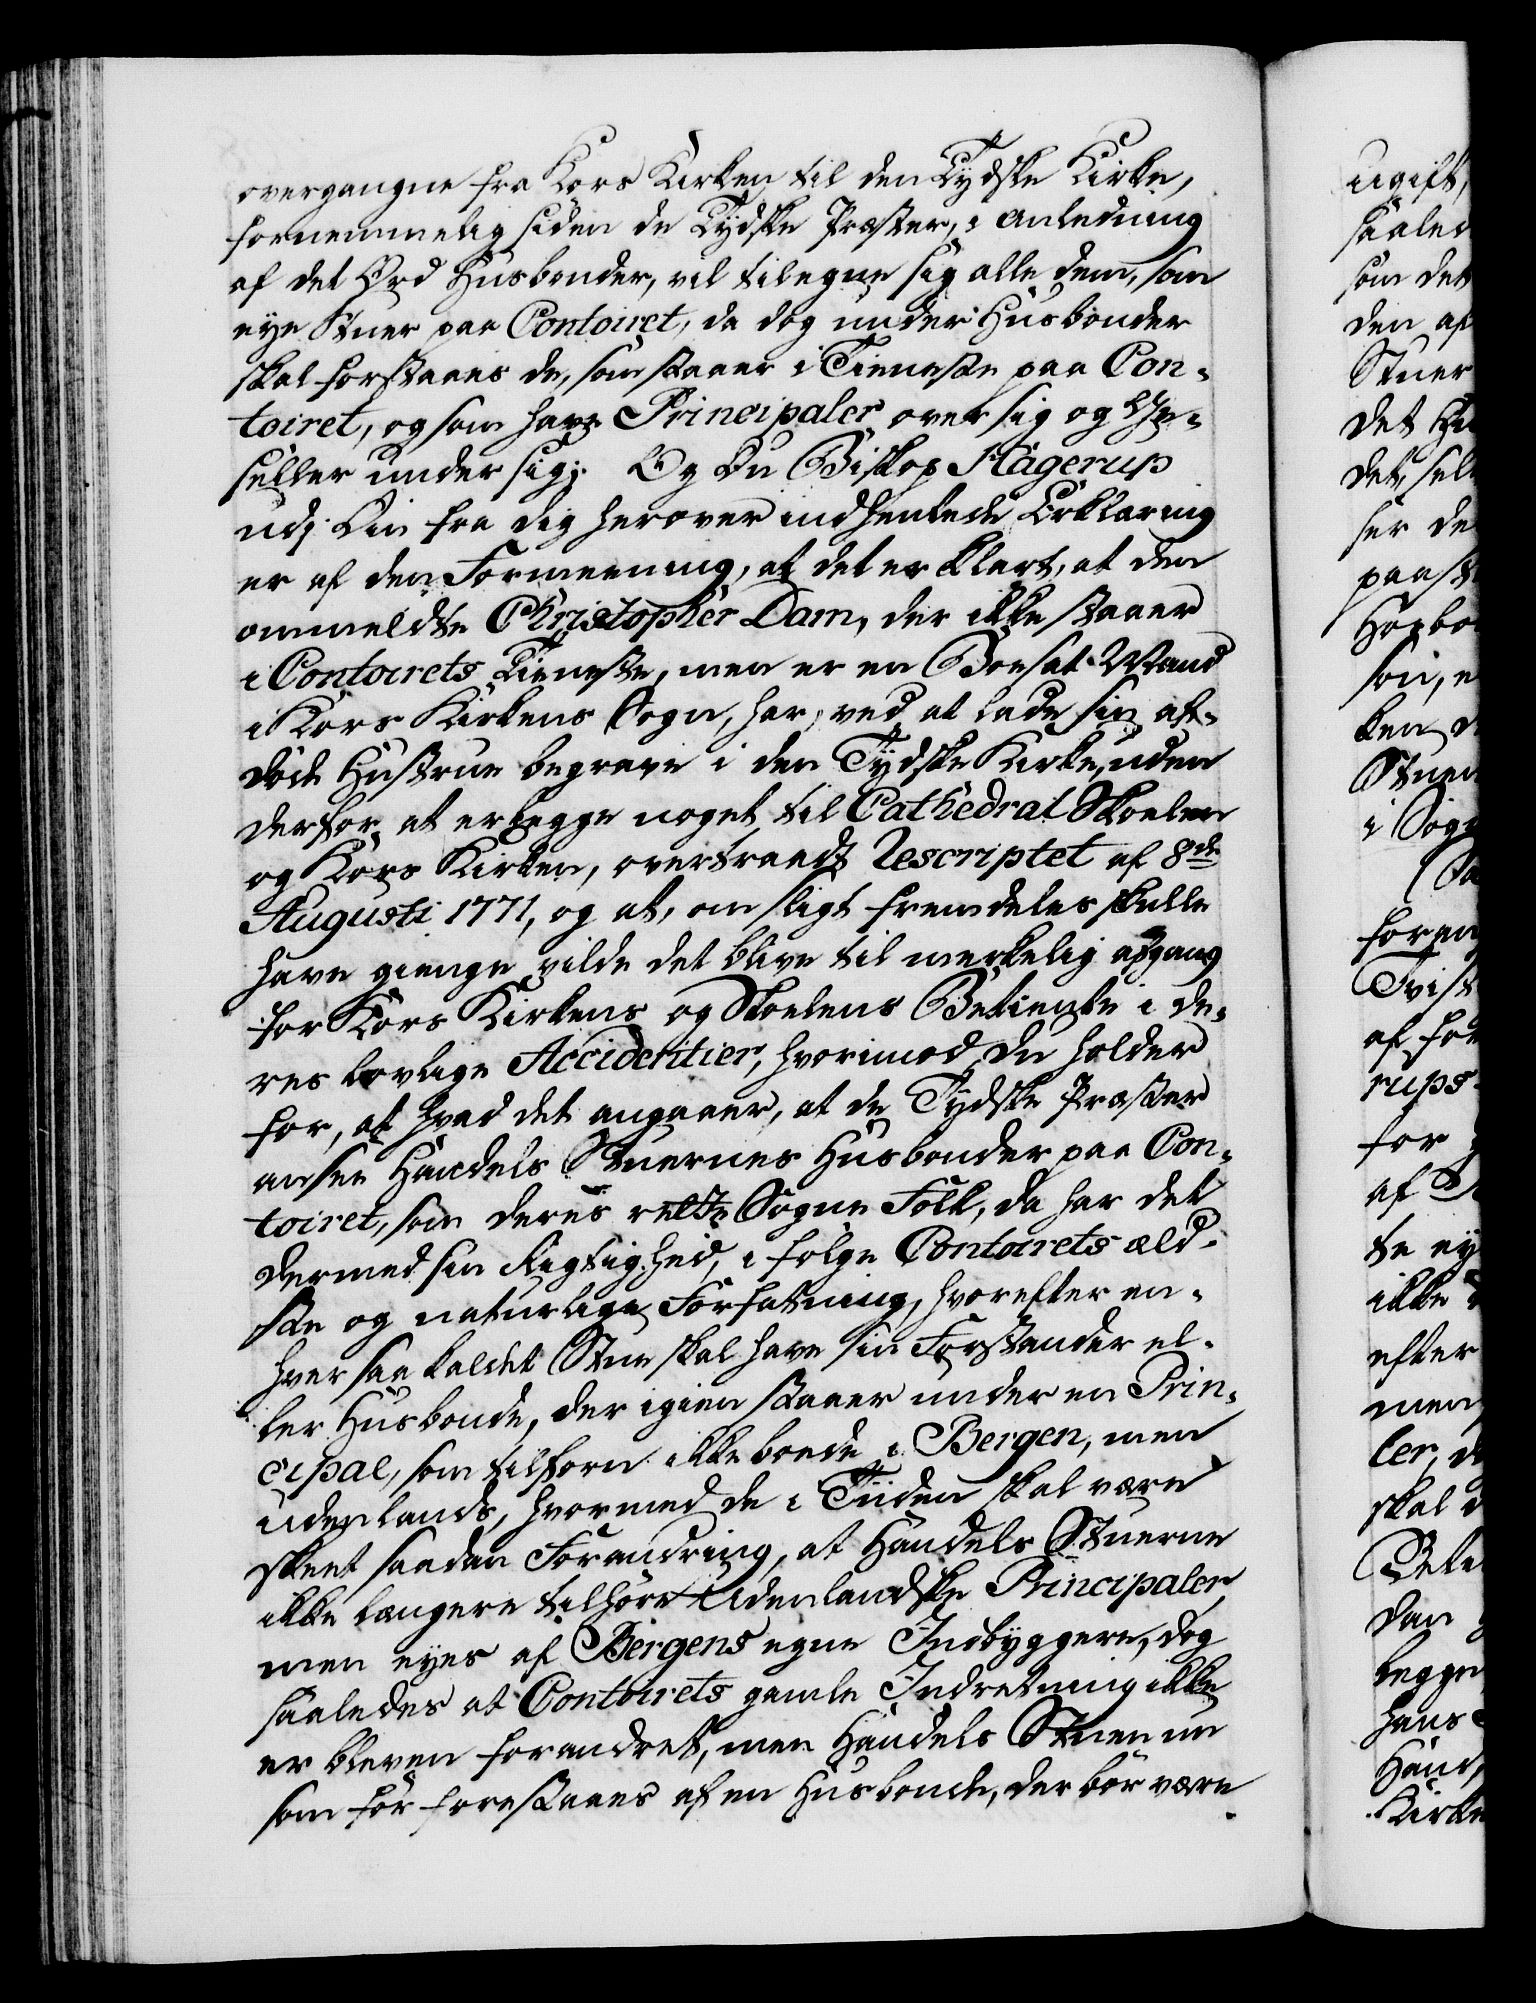 overgangne fra Kors Kirken til den Tydske Kirke,
fornemmelig siden de Tydske Præster, i Anledning
af det Ord Husbonder, vil tilegne sig alle dem, som
eye Stuer paa Contoiret, da dog under Husbonder
skal forstaaes de, som staaer i Tieneste paa Con-
toiret, og som have Principaler over sig og Ge-
seller under sig;. Og Du Biskop Hagerup
udj Din fra dig herover indhentede Erklæring
er af den Formeening, at det er klart, at den
ommeldte Christopher Dam, der ikke staaer
i Contoirets Tieneste, men er en Boesat Mand
i Kors Kirkens Sogn, har, ved at lade sin af-
døde Hustrue begrave i den Tydske Kirke, uden
derfor at erlegge noget til Cathedral Skoelen
og Kors Kirken, overtraadt Rescriptet af 8de
Augusti 1771, og at, om sligt fremdeles skulle
have gienge vilde det blive til merkelig afgang
for Kors Kirkens og Skoelens Betiente i de-
res lovlige Accidentier, hvorimod Du holder
for, at hvad det angaaer, at de Tydske Præster
ansee Handels Stuernes Husbonder paa Con-
toiret, som deres rette Sogne Folk, da har det
dermed sin Rigtighed, i følge Contoirets æld-
ste og naturlige Forfatning, hvorefter en-
hver saa kaldet Stue skal have sin Forstander el-
ler Husbonde, der igien staaer under en Prin-
cipal, som tilforn ikke boede i Bergen, men
udenlands, hvormed de i Tiiden skal være
skeet saadan Forandring, at Handels Stuerne
ikke længere tilhører Udenlandske Principaler,
men eyes af Bergens egne Indbyggere, dog
saaledes at Contoirets gamle Indretning ikke
er bleven forandret, men Handels Stuen nu
som før forestaaes af en Husbonde, der bør være
ugift,
som det
den af
Stuer
det
ser de
ken
i
af
rups
for
af
ikke
efter
men
ler,
skal
dan
hans
Kirke